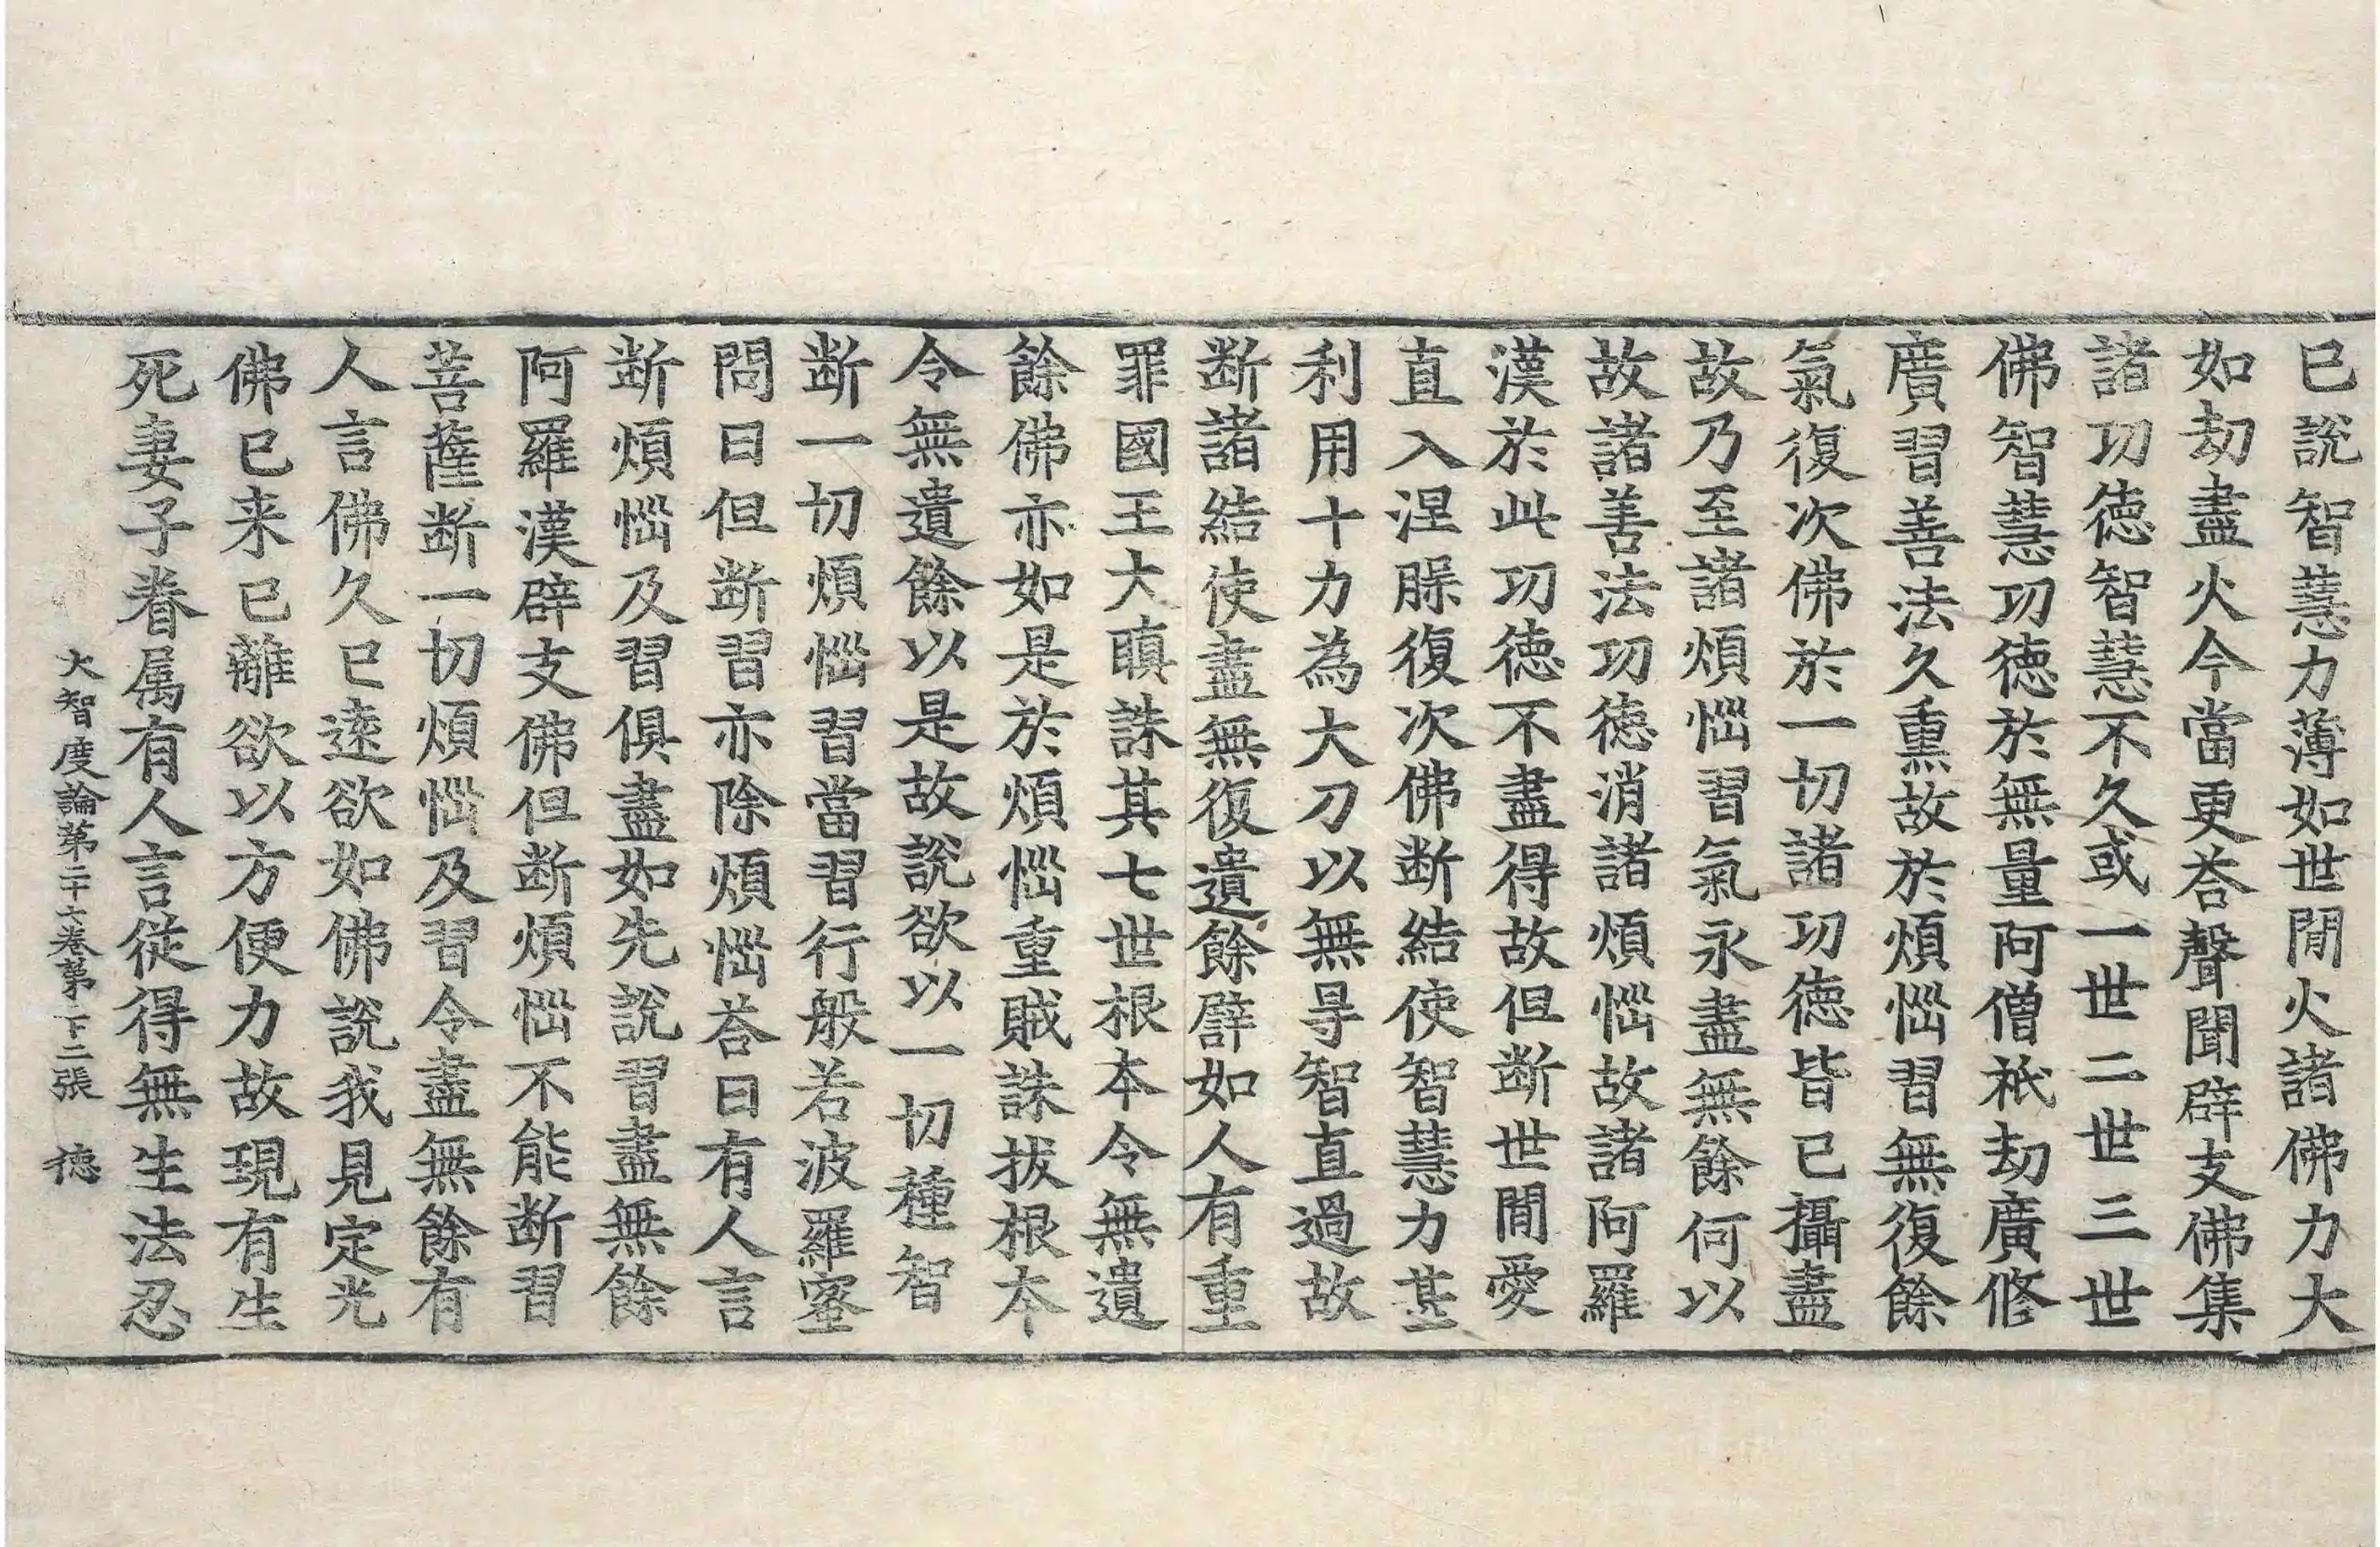 已說智慧力薄如世間火諸佛力大
如劫盡火今當更荅聲聞辟支佛集
諸功徳智慧不久或一世二世三世
佛智慧功徳於無量阿僧祇劫廣修
廣習善法久熏故於煩惱習無復餘
氣復次佛於一切諸功徳皆已攝盡
故乃至諸煩惱習氣永盡無餘何以
故諸善法功徳消諸煩惱故諸阿羅
漢於此功徳不盡得故但断世間愛
直入涅槃復次佛断結使智慧力甚
利用十力為大刀以無㝵智直過故
断諸結使盡無復遺餘譬如人有重
罪國王大瞋誅其七世根本令無遺
餘佛亦如是於煩惱重賊誅拔根本
令無遺餘以是故說欲以一切種智
断一切煩惱習當習行般若波羅蜜
問曰但断習亦除煩惱荅曰有人言
断煩惱及習俱盡如先說習盡無餘
阿羅漢辟支佛但断煩惱不能断習
菩薩断一切煩惱及習令盡無餘有
人言佛久已遠欲如佛說我見定光
佛已来已離欲以方便力故現有生
死妻子眷属有人言從得無生法忍
大智度論第二十六卷第二張 徳